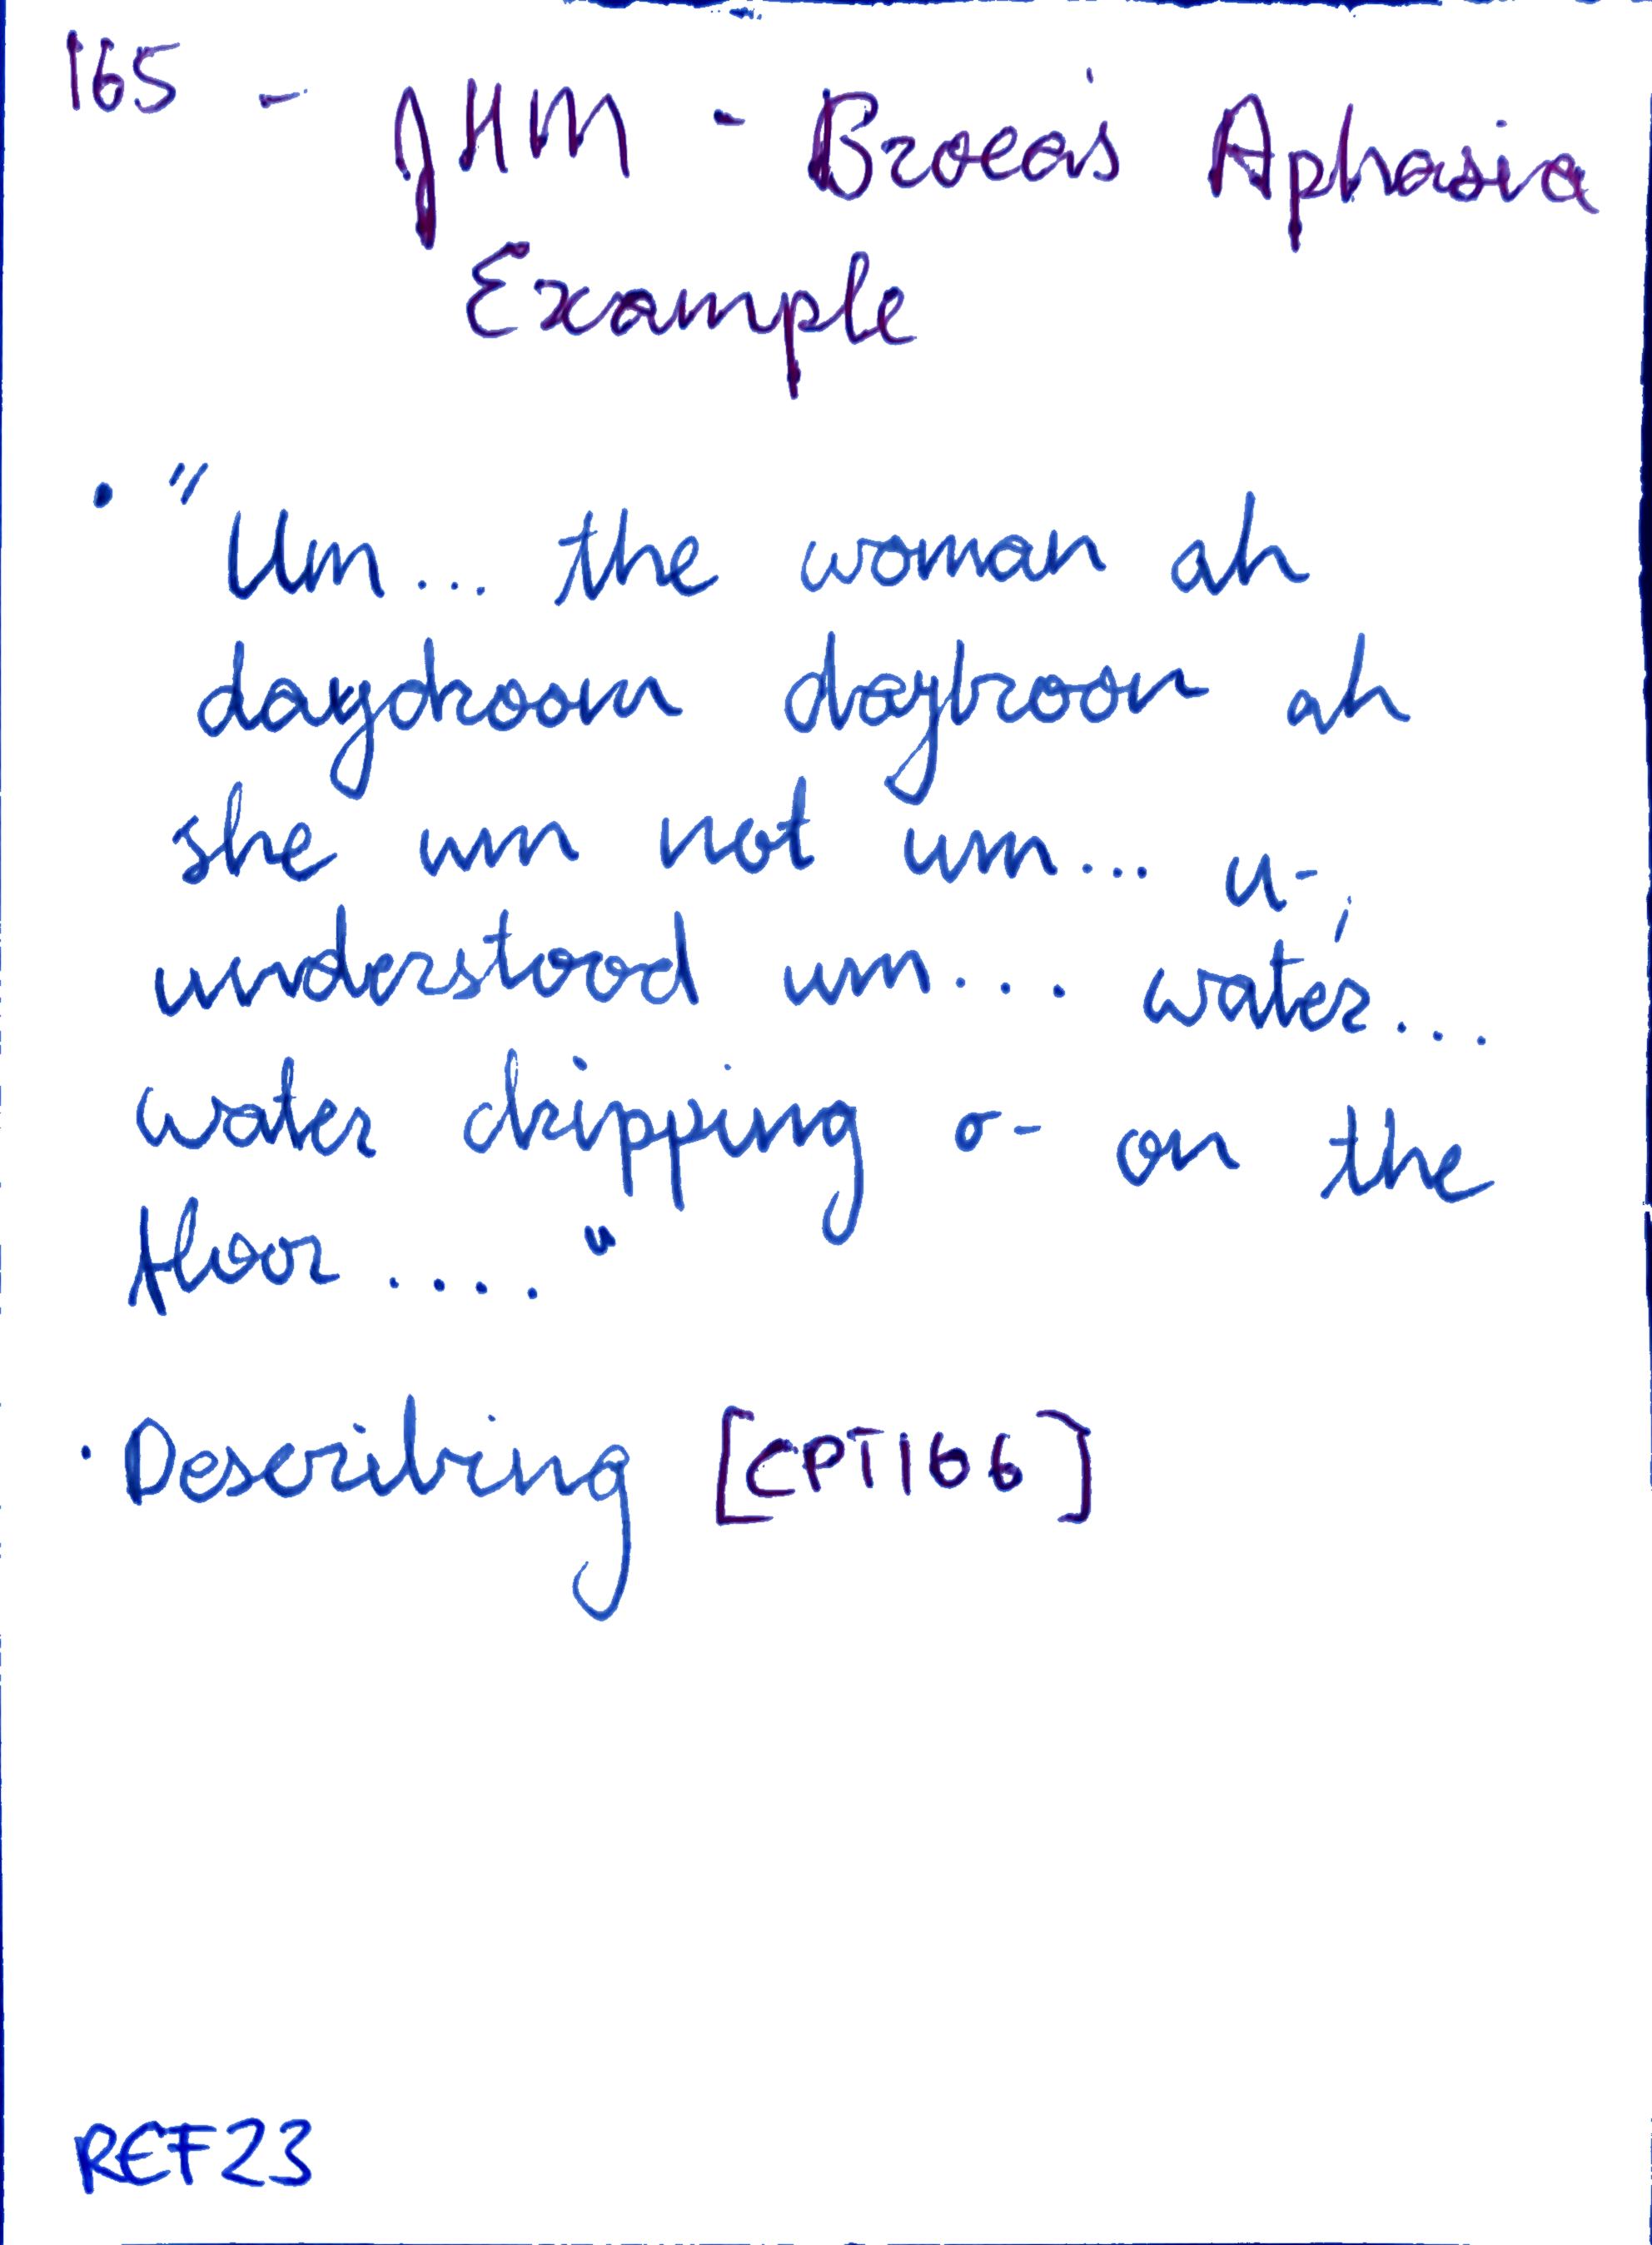 165 - JHM - Broca's Aphasia
Example
• "Um... the woman ah
daydroom daybroon ah
she um not um... u-,
understood um... water...
water dripping o- on the
floor ...."
• Describing [CPT166]
REF23